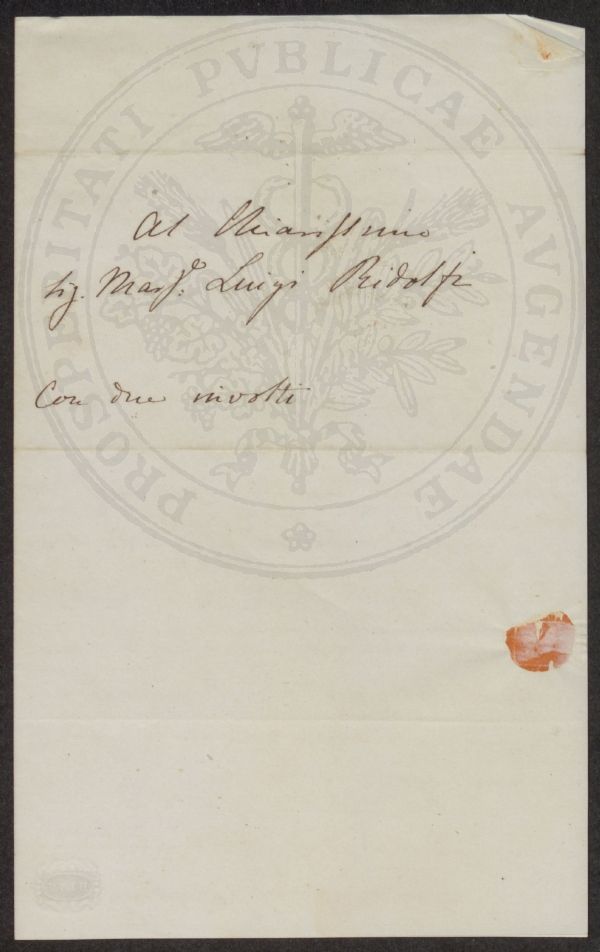 PROSPERITATI PVBLICAE AVGENDAE
Al Chiarissimo
Sig. Marse. Luigi Ridolfi
Con due involti